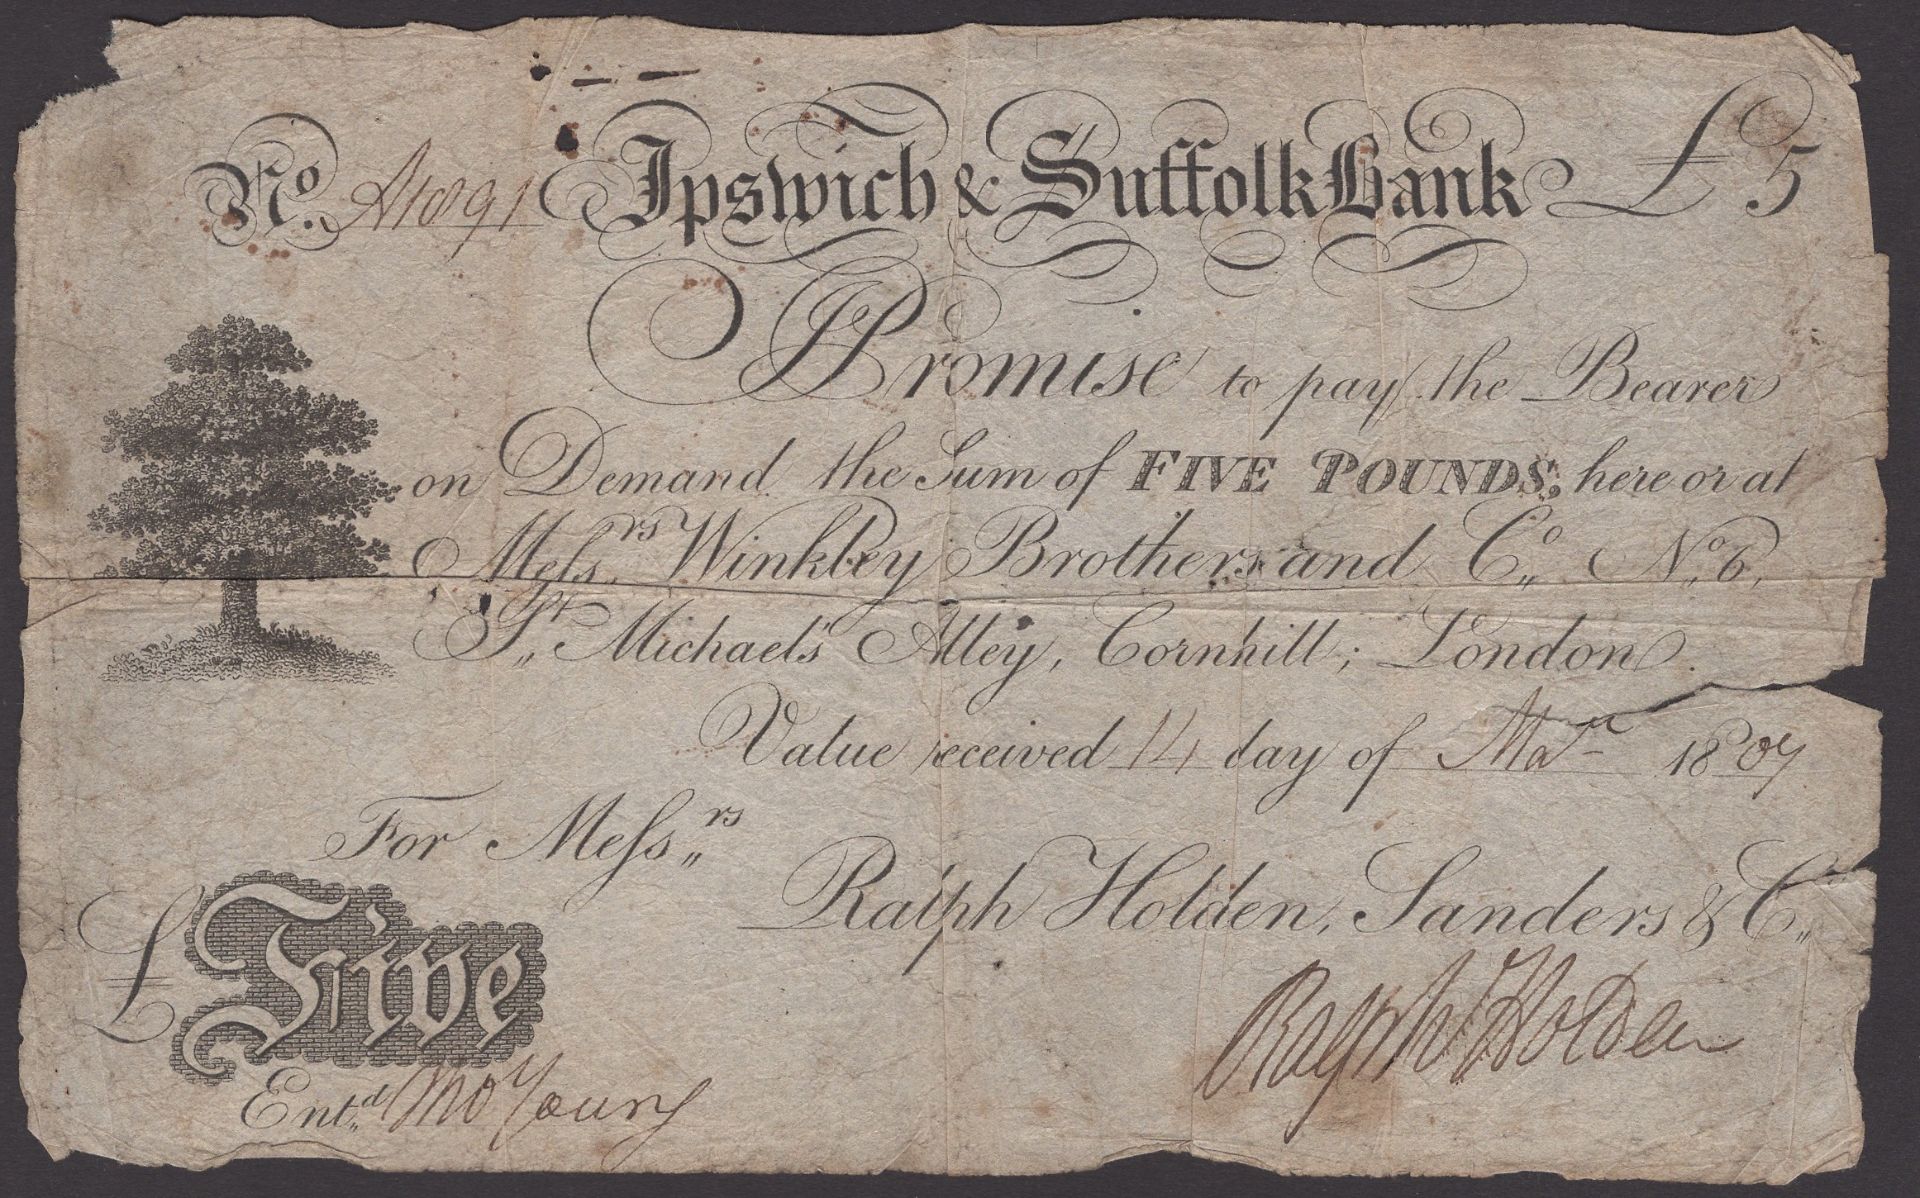 No. A1891 Ipswich & Suffolk Bank £5
I Promise to pay the Bearer
on Demand the Sum of FIVE POUNDS, here or at
Messrs. Winkley Brothers and Co. No. 6,
St. Michael's Alley, Cornhill; London.
Value received 14 day of Mar 1807
For Messrs.
Ralph Holden, Sanders & Co.
£ Five
Ralph Holden
Entd. Tho Young